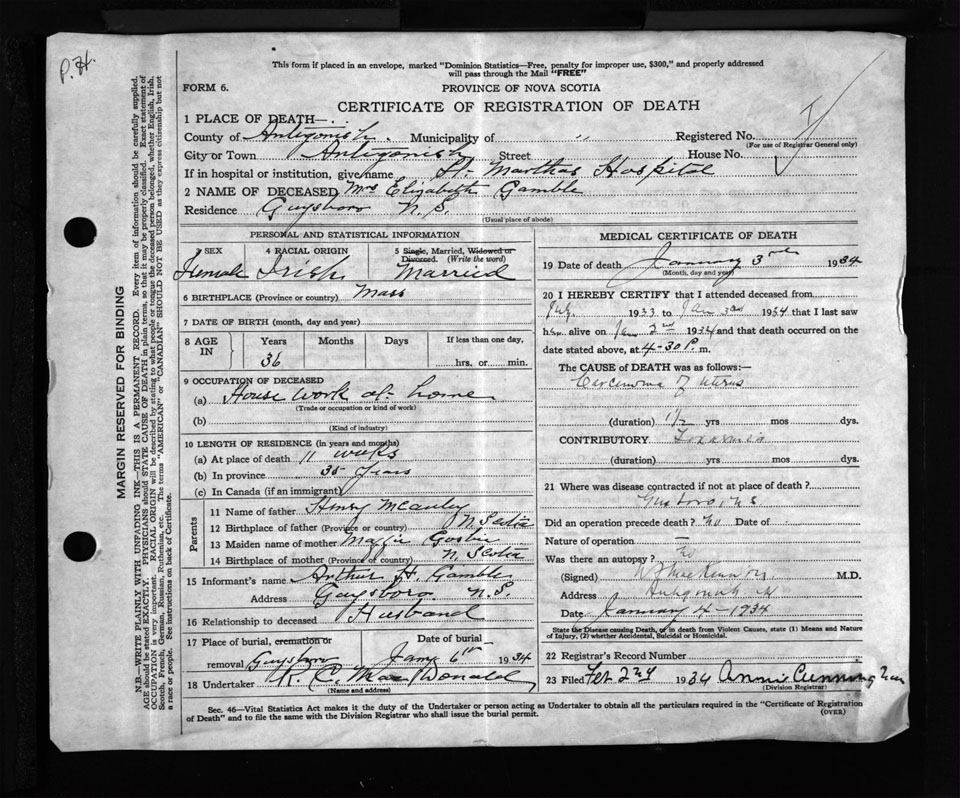 P.H.
This form if placed in an envelope, marked "Dominion Statistics—Free, penalty for improper use, $300," and properly addressed
will pass through the Mail "FREE"
FORM 6.
PROVINCE OF NOVA SCOTIA
CERTIFICATE OF REGISTRATION OF DEATH
1 PLACE OF DEATH—
County of Antigonish. Municipality of " Registered No.
(For use of Registrar General only)
City or Town Antigonish Street House No.
If in hospital or institution, give name St. Marthas Hospital
2 NAME OF DECEASED Mrs Elizabeth Gamble
Residence Guysboro N.S.
(Usual place of abode)
PERSONAL AND STATISTICAL INFORMATION
3 SEX 4 RACIAL ORIGIN 5 Single, Married, Widowed or
Divorced. (Write the word)
Female Irish Married
6 BIRTHPLACE (Province or country) Mass
7 DATE OF BIRTH (month, day and year)
8 AGE IN Years Months Days If less than one day,
36 hrs. or min.
9 OCCUPATION OF DECEASED
(a) House work at home
(Trade or occupation or kind of work)
(b)
(Kind of industry)
10 LENGTH OF RESIDENCE (in years and months)
(a) At place of death 11 weeks
(b) In province 35 years
(c) In Canada (if an immigrant)
Parents
11 Name of father Henry McAuley
12 Birthplace of father (Province or country) N Scotia
13 Maiden name of mother Maggie
14 Birthplace of mother (Province or country) N. Scotia
15 Informant's name Arthur H. Gamble
Address Guysboro. N.S.
16 Relationship to deceased Husband
17 Place of burial, cremation or Date of burial
removal Guysboro Jany 6th 1934
18 Undertaker R. C. MacDonald
(Name and address)
MEDICAL CERTIFICATE OF DEATH
19 Date of death January 3rd 1934
(Month, day and year)
20 I HEREBY CERTIFY that I attended deceased from
July 1933 to Jan 3rd 1934 that I last saw
her alive on Jan 2nd 1934 and that death occurred on
date stated above, at 4-30 P. m.
The CAUSE of DEATH was as follows:—
Carcinoma of uterus
(duration) 1½ yrs mos dys.
CONTRIBUTORY Toxaemia
(duration) yrs mos dys.
21 Where was disease contracted if not at place of death?
Guysboro NS
Did an operation precede death? no Date of
Nature of operation —
Was there an autopsy? no
(Signed) MacKinnon M.D.
Address Antigonish NS
Date January 4-1934
State the Disease causing Death, or in death from Violent Causes, state (1) Means and Nature
of Injury, (2) whether Accidental, Suicidal or Homicidal.
22 Registrar's Record Number
23 Filed Feb 2nd 1934 Annie Cunningham
(Division Registrar)
Sec. 46—Vital Statistics Act makes it the duty of the Undertaker or person acting as Undertaker to obtain all the particulars required in the "Certificate of Registration
of Death" and to file the same with the Division Registrar who shall issue the burial permit. (OVER)
MARGIN RESERVED FOR BINDING
N.B.—WRITE PLAINLY WITH UNFADING INK—THIS IS A PERMANENT RECORD. Every item of information should be carefully supplied.
AGE should be stated EXACTLY. PHYSICIANS should STATE CAUSE OF DEATH in plain terms, so that it may be properly classified. Exact statement of
OCCUPATION is very important. RACIAL ORIGIN will be described by stating to what people or tongue the deceased person belonged, whether English, Irish,
Scotch, French, German, Russian, Ruthenian, etc. The terms "AMERICAN" or "CANADIAN" SHOULD NOT BE USED as they express citizenship but not
a race or people. See instructions on back of Certificate.